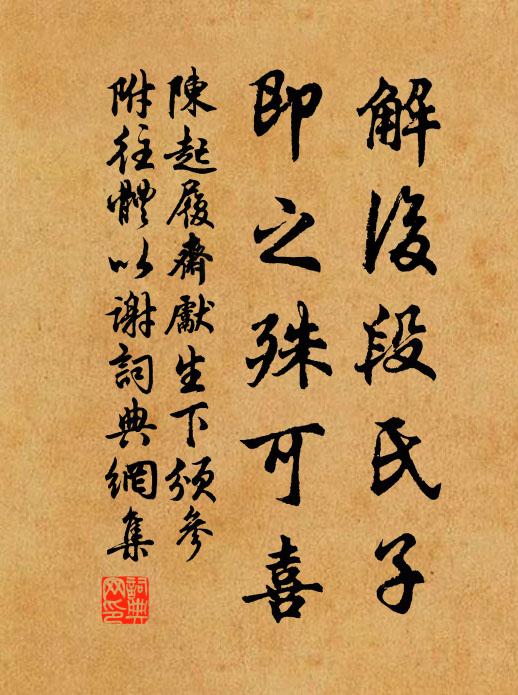 解後段氏子
即之殊可喜
陳起履齋獻生下頒參
附往體以謝詞典網集
詞典
网印